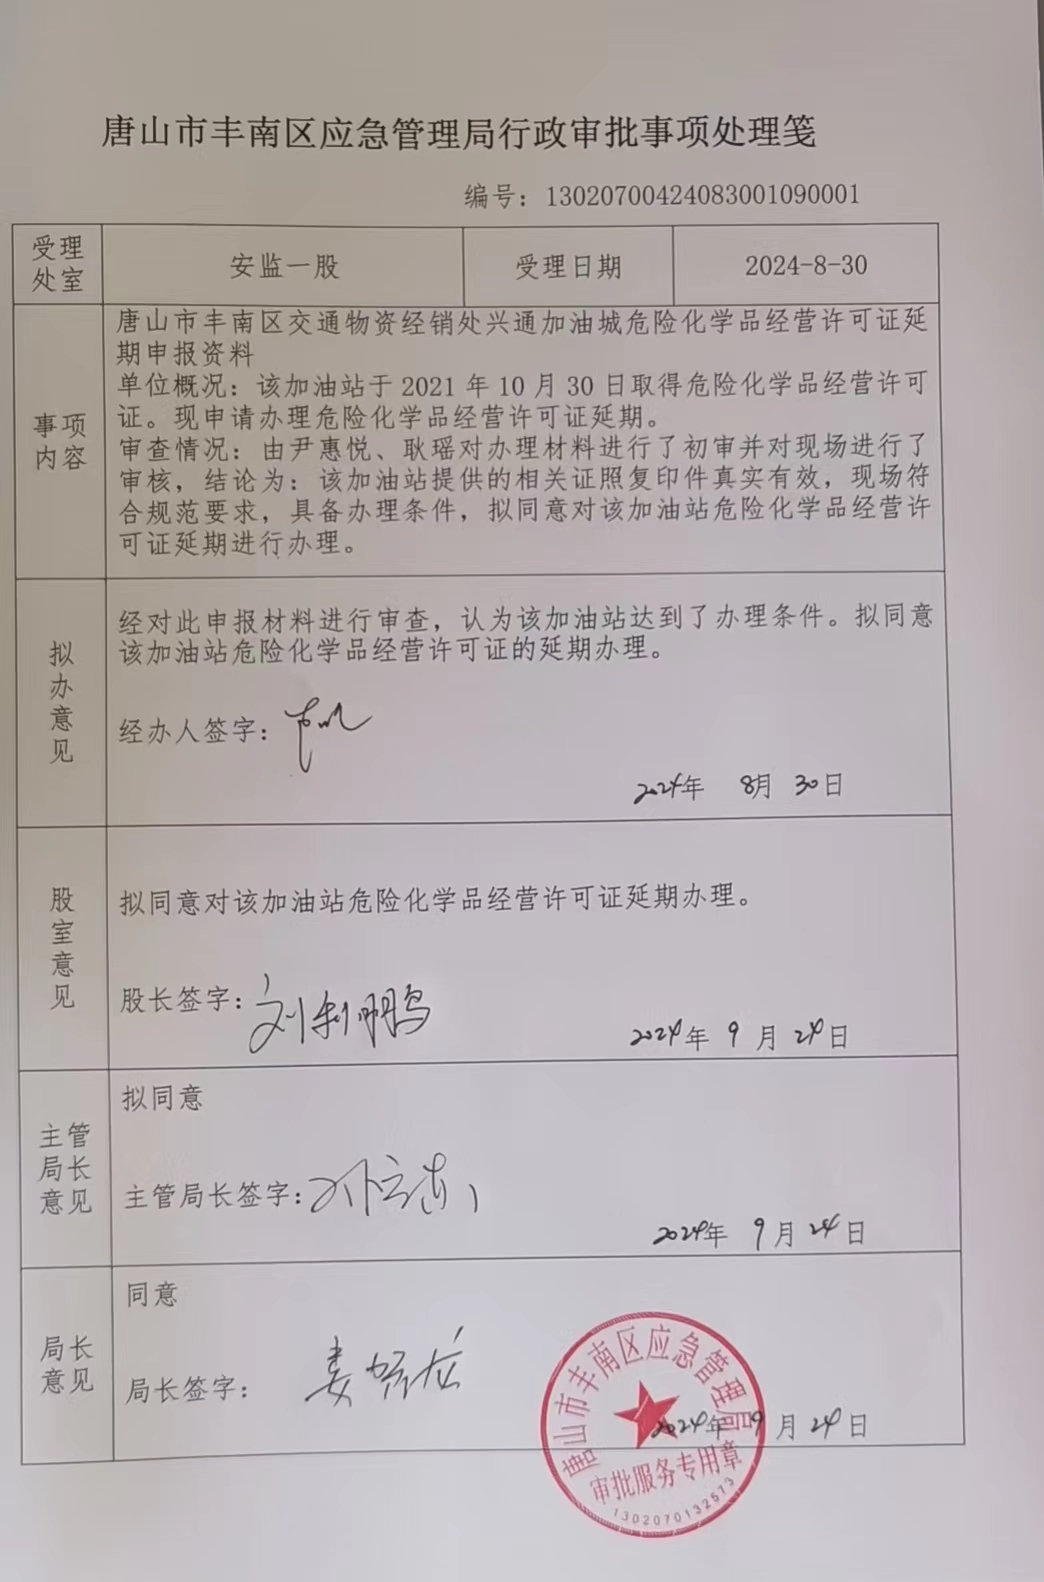 唐山市丰南区应急管理局行政审批事项处理笺
编号：13020700424083001090001
受理处室
安监一股
受理日期
2024-8-30
事项内容
唐山市丰南区交通物资经销处兴通加油城危险化学品经营许可证延
期申报资料
单位概况：该加油站于 2021 年 10 月 30 日取得危险化学品经营许可
证。现申请办理危险化学品经营许可证延期。
审查情况：由尹惠悦、耿瑶对办理材料进行了初审并对现场进行了
审核，结论为：该加油站提供的相关证照复印件真实有效，现场符
合规范要求，具备办理条件，拟同意对该加油站危险化学品经营许
可证延期进行办理。
拟办意见
经对此申报材料进行审查，认为该加油站达到了办理条件。拟同意
该加油站危险化学品经营许可证的延期办理。
经办人签字：
2024年 8月 30日
股室意见
拟同意对该加油站危险化学品经营许可证延期办理。
股长签字：刘利鹏
2024年 9月 24日
主管局长意见
拟同意
主管局长签字：
2024年 9月 24日
局长意见
同意
局长签字：
2024年 9月 24日
唐山市丰南区应急管理局
审批服务专用章
1302070132573